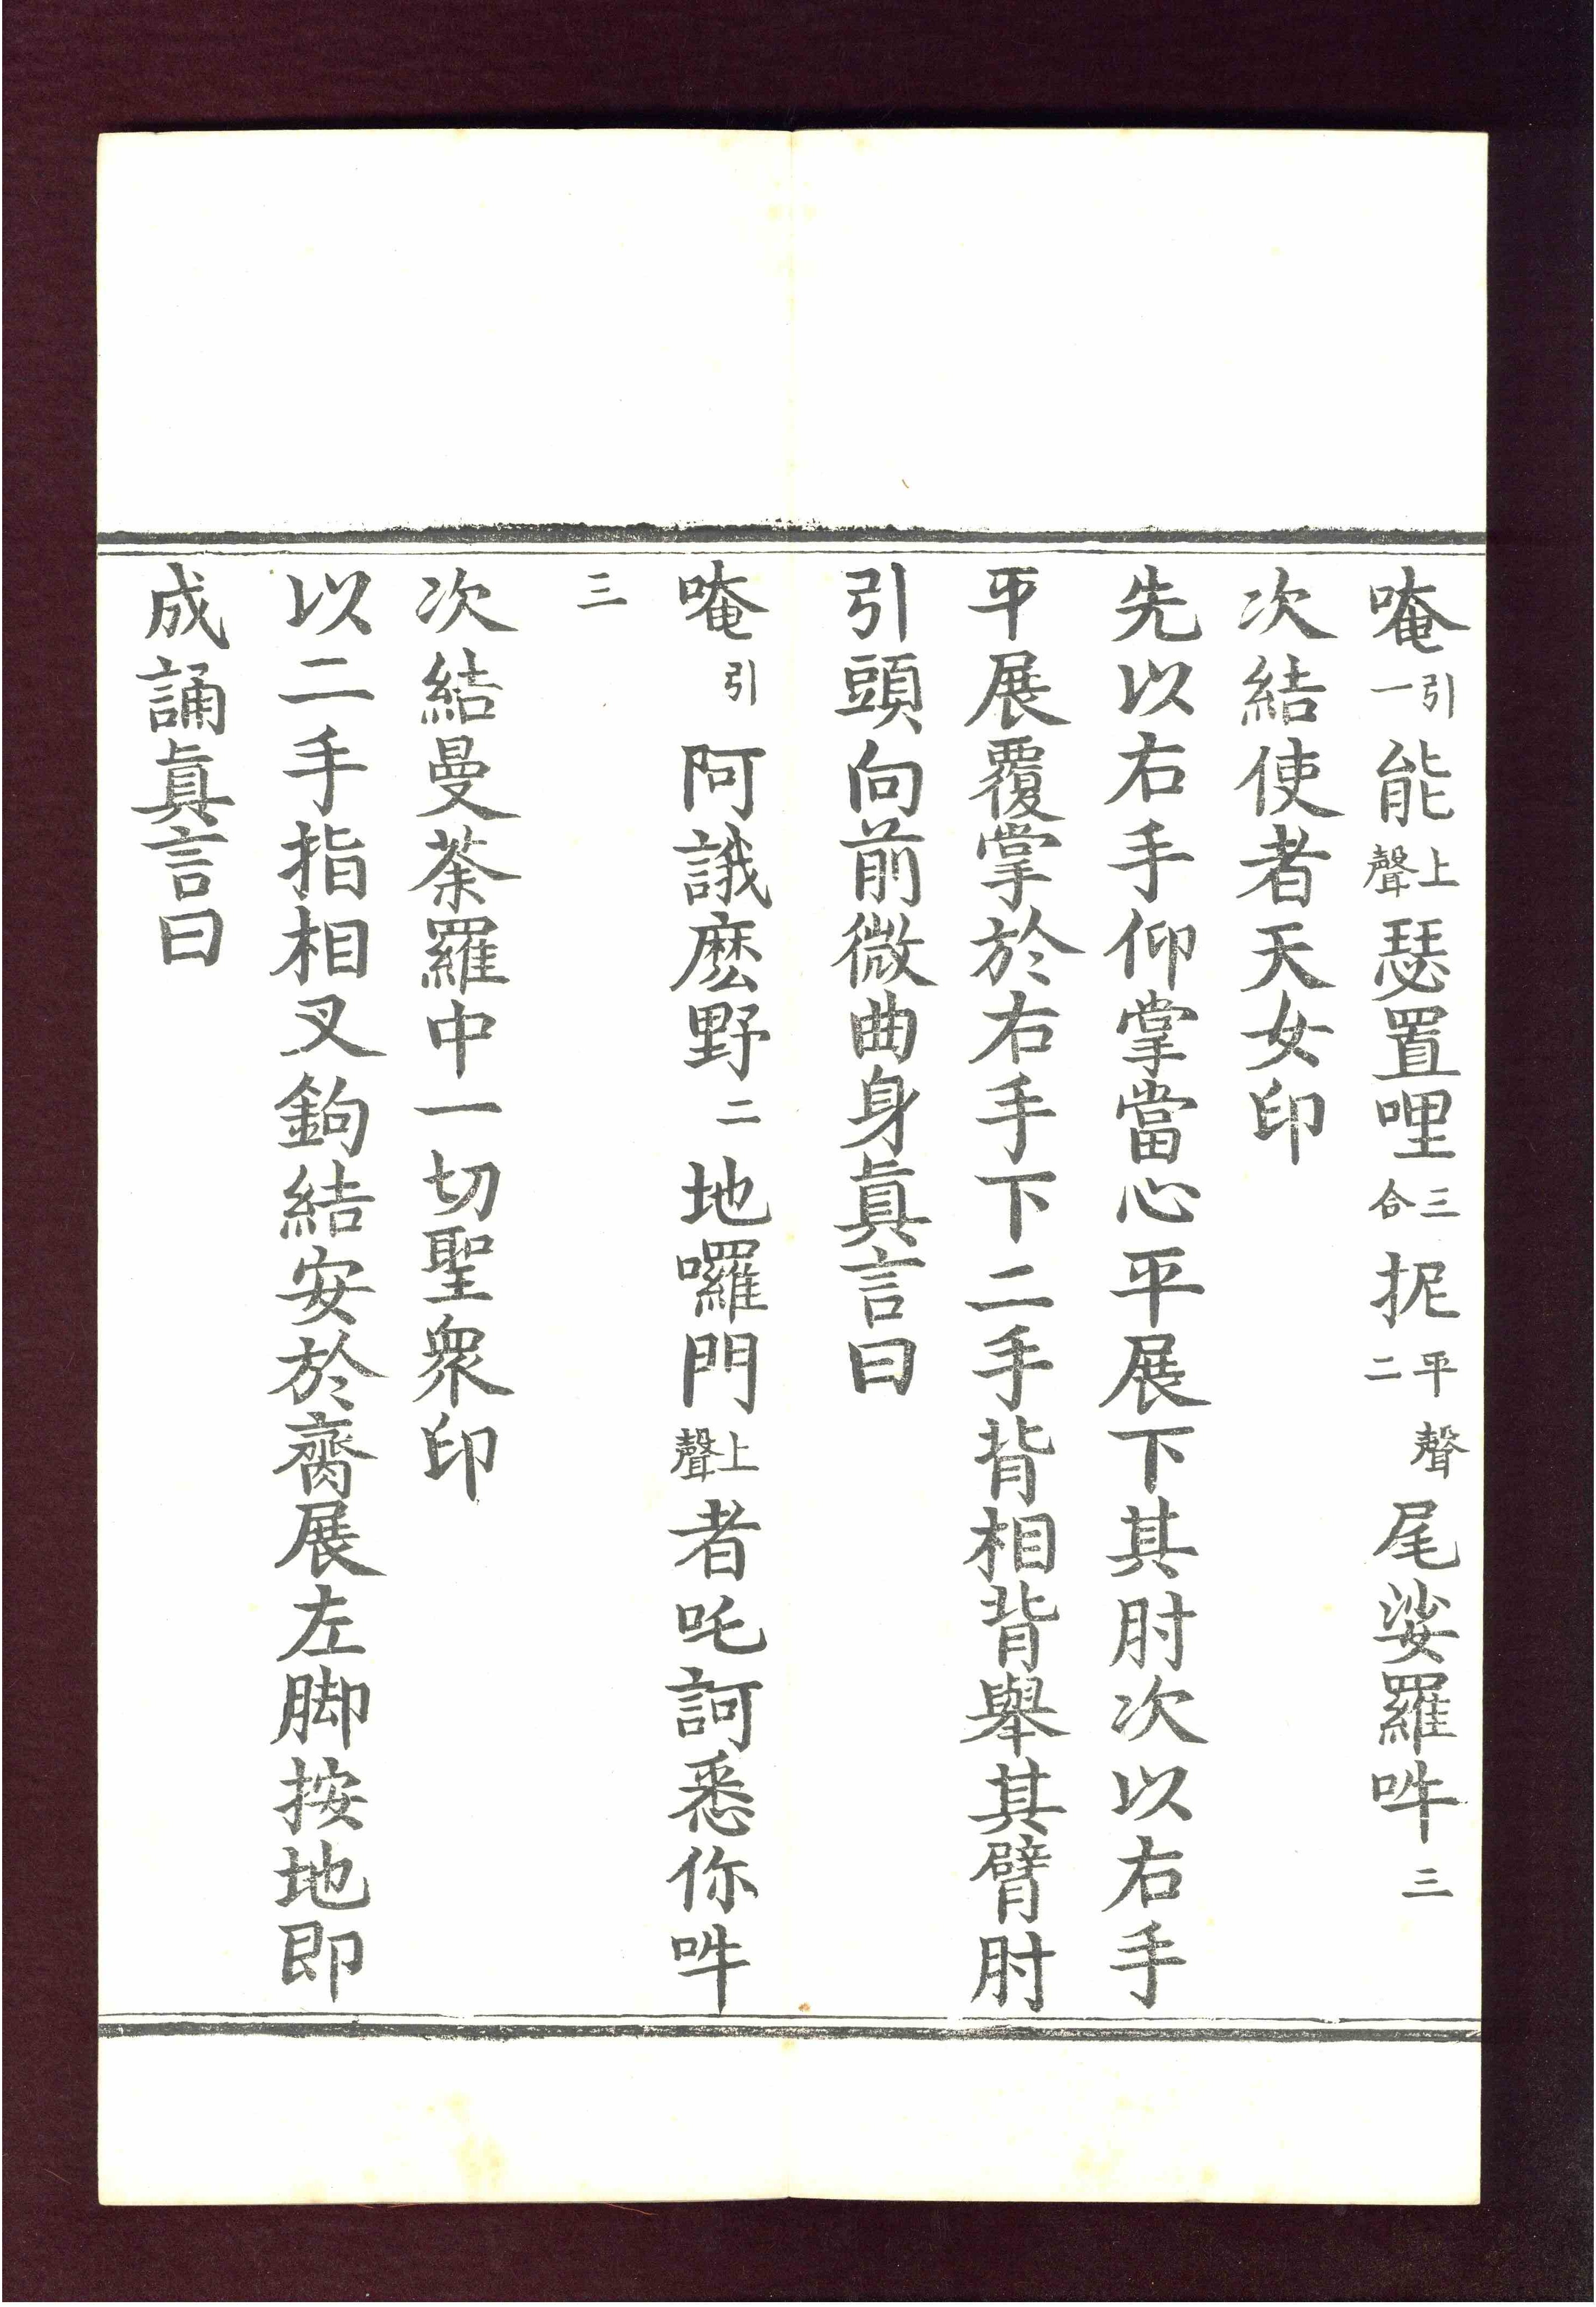 唵引一能上聲瑟置哩三合抳平聲二尾娑羅吽三
次結使者天女印
先以右手仰掌當心平展下其肘次以右手
平展覆掌於右手下二手背相背舉其臂肘
引頭向前微曲身眞言曰
唵引阿誐麼野二地囉門上聲者吒訶悉你吽
三
次結曼荼羅中一切聖衆印
以二手指相叉鉤結安於臍展左脚按地即
成誦眞言曰